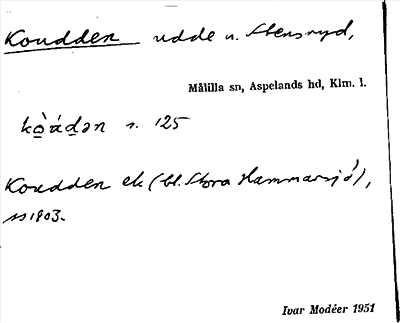 Koudden udde n. Stensryd,
Målilla sn, Aspelands hd, Klm. l.
kò̱ádən s. 125
Koudden ek (bl. Stora Hammarsjö),
1903.
Ivar Modéer 1931